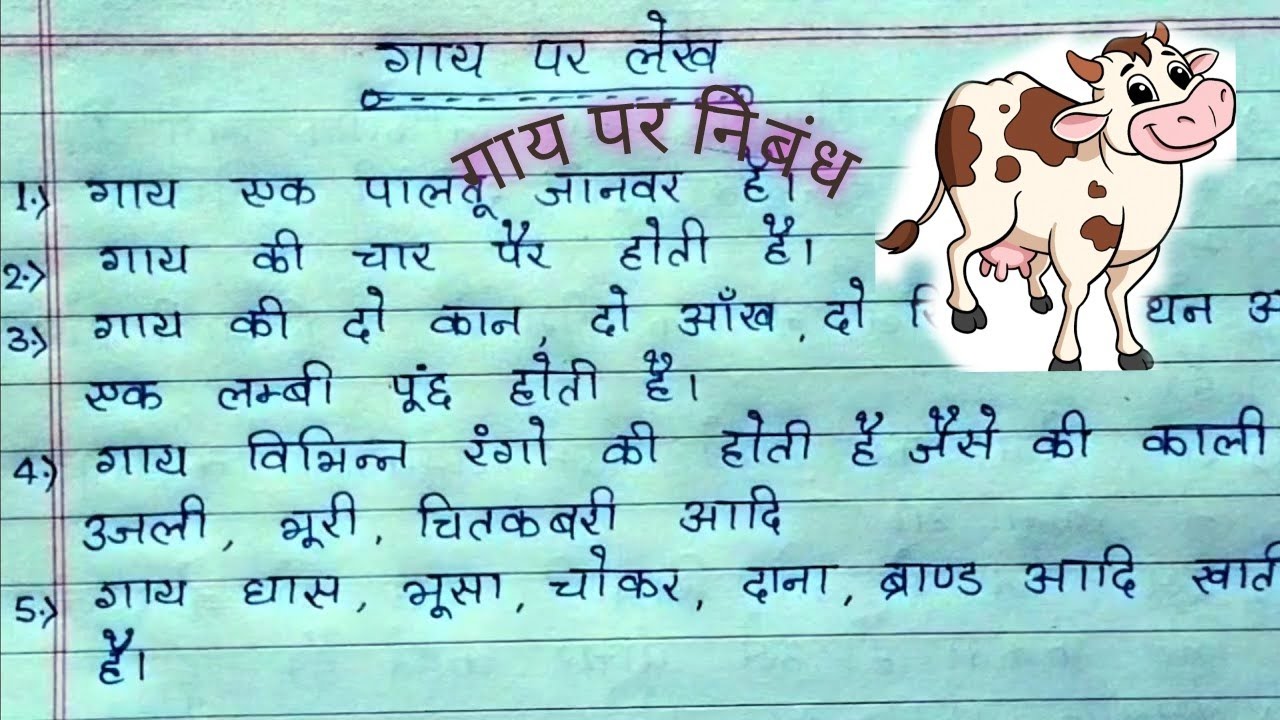 गाय पर लेख
गाय पर निबंध
1.) गाय एक पालतू जानवर है।
2.) गाय की चार पैर होती है।
3.) गाय की दो कान, दो आँख, दो थन
एक लम्बी पूंछ होती है।
4.) गाय विभिन्न रंगो की होती है जैसे की काली
उजली, भूरी, चितकबरी आदि
5.) गाय घास, भूसा, चोकर, दाना, ब्राण्ड आदि खाती
है।